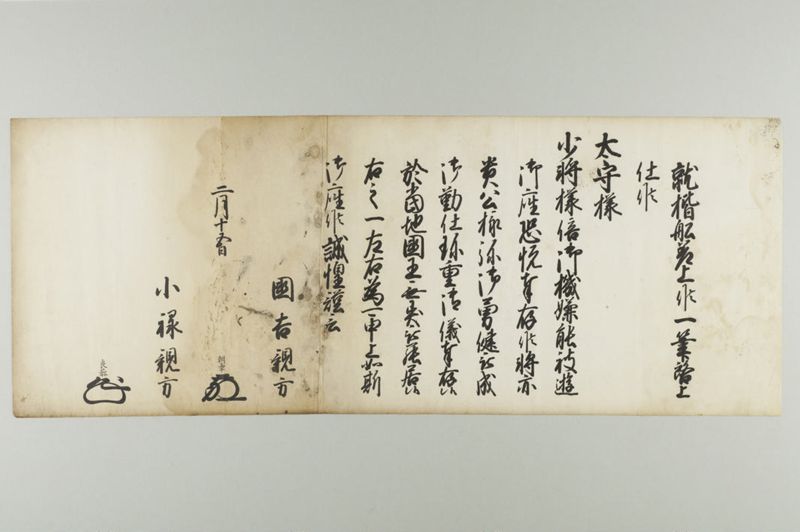 就楷船差上候一筆啓上
仕候
太守様
少将様倍御機嫌能被遊
御座恐悦奉存候将亦
貴公様弥御勇健被成
御勤仕珍重御儀奉存候
於当地國王無恙被罷居候
右之一左右為可申上如斯
御座候誠惶謹言
二月十五日
國吉親方
朝
小禄親方
良